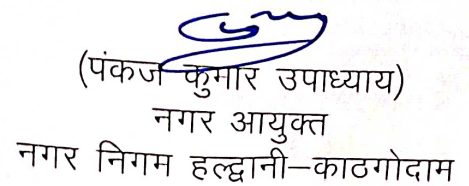 (पंकज कुमार उपाध्याय)
नगर आयुक्त
नगर निगम हल्द्वानी–काठगोदाम